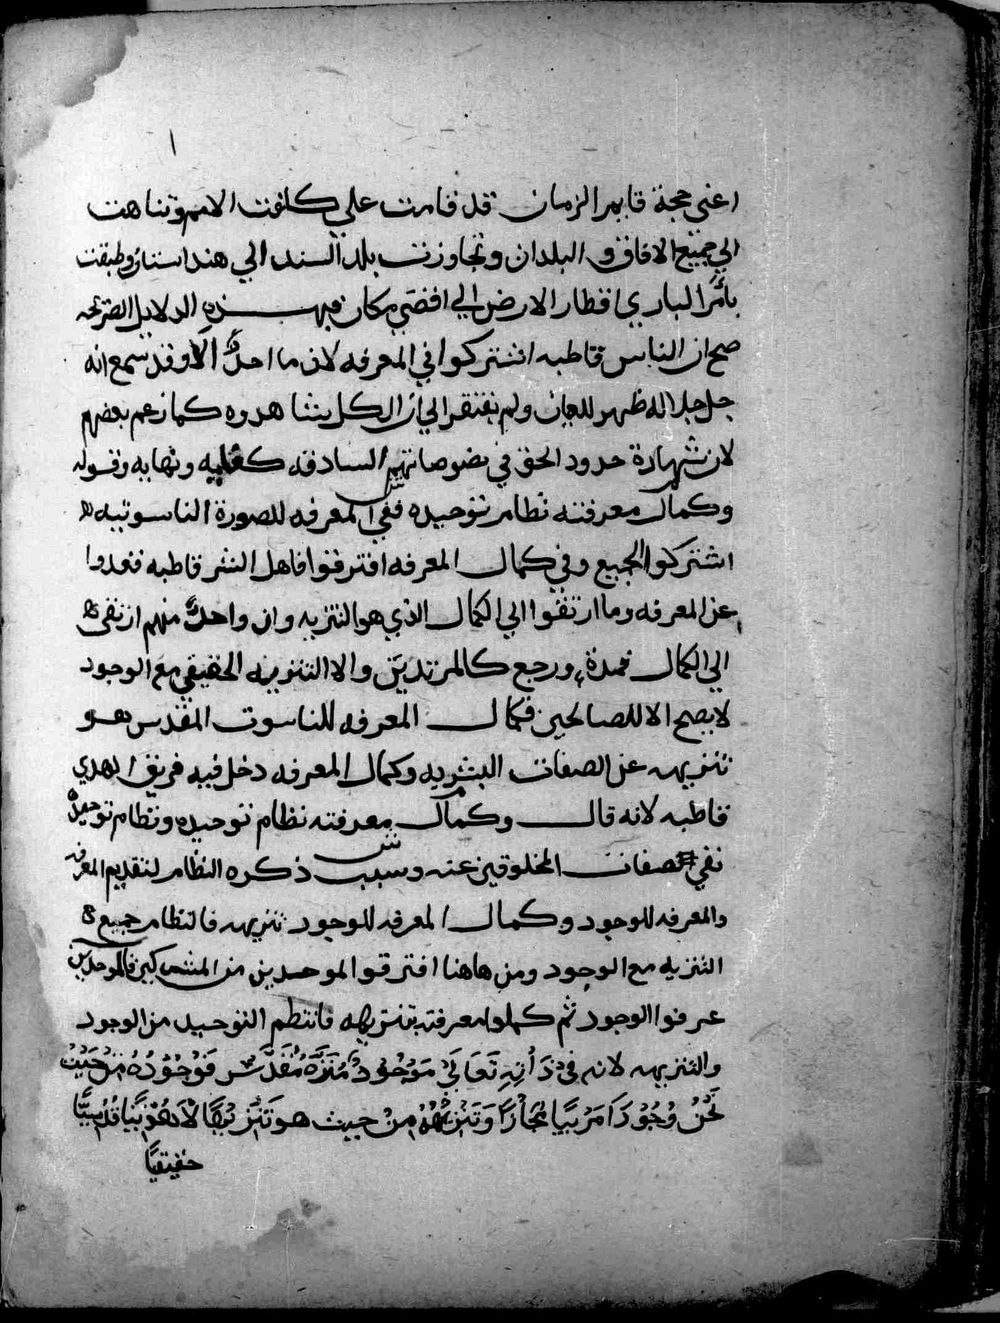 ١
اعني حجة قايم الزمان قد قامت علي كافت الامم وتناهت
الي جميع الافاق والبلدان وتجاوزت بلد السند الي هنداستان وطبقت
بأمر الباري اقطار الارض الي اقصي مكان فبهذه الدلايل الصريحه
صح ان الناس قاطبه اشتركوا في المعرفه لان ما احدٌ الا وقد سمع انه
جل جلاله ظهر للعيان ولم يفتقر الي ان الكل يشاهدوه كما زعم بعضهم
لان شهادة حدود الحق في نصوصاتهم السادقه كفايه ونهايه وقوله
وكمال معرفته نظام توحيده ففي المعرفه للصورة الناسوتيه
اشتركوا الجميع وفي كمال المعرفه افترقوا فاهل الشر قاطبه فعدوا
عن المعرفه وما ارتقوا الي الكمال الذي هو التنزيه وان واحدٌ منهم ارتقي
الي الكمال فمدة ورجع كالمرتدين والا التنزيه الحقيقي مع الوجود
لا يصح الا للصالحين فكمال المعرفه للناسوت المقدس هو
تنزيهه عن الصفات البشريه وكمال المعرفه دخل فيه فريق الهدي
قاطبه لانه قال وكمال معرفته نظام توحيده ونظام توحيده
نفي صفات المخلوقين عنه وسبب ذكره النظام لتقديم المعرفه
والمعرفه للوجود وكمال المعرفه للوجود تنزيهه فالنظام جميع
التنزيه مع الوجود ومن هاهنا افترقوا الموحدين من المشركين فالموحدين
عرفوا الوجود ثم كملوا معرفته بتنزيهه فانتظم التوحيد من الوجود
والتنزيهه لانه في ذاته تعالي موجودٌ منزه مقدس فوجوده من حيث
نحن وجودا مرييا مجازا وتنزيهه من حيث هو تنزيها لاهوتيا قدسيا
حقيقيا